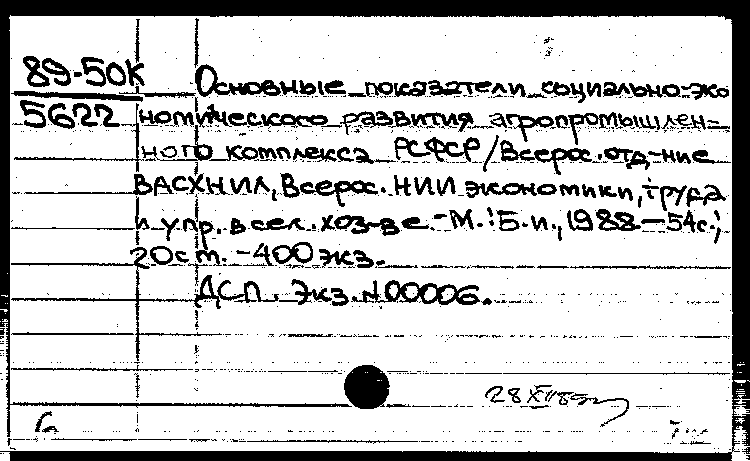 89-50К Основные показатели социально-эко
5622 номического развития агропромышлен-
ного комплекса РСФСР/Всерос. отд-ние
ВАСХНИЛ, Всерос. НИИ экономики, труда
и упр. в сел. хоз-ве.-М.: Б.и., 1988.-54с.;
20см. -400 экз.
ДСП. Экз. N00006.
28 XII 89
6